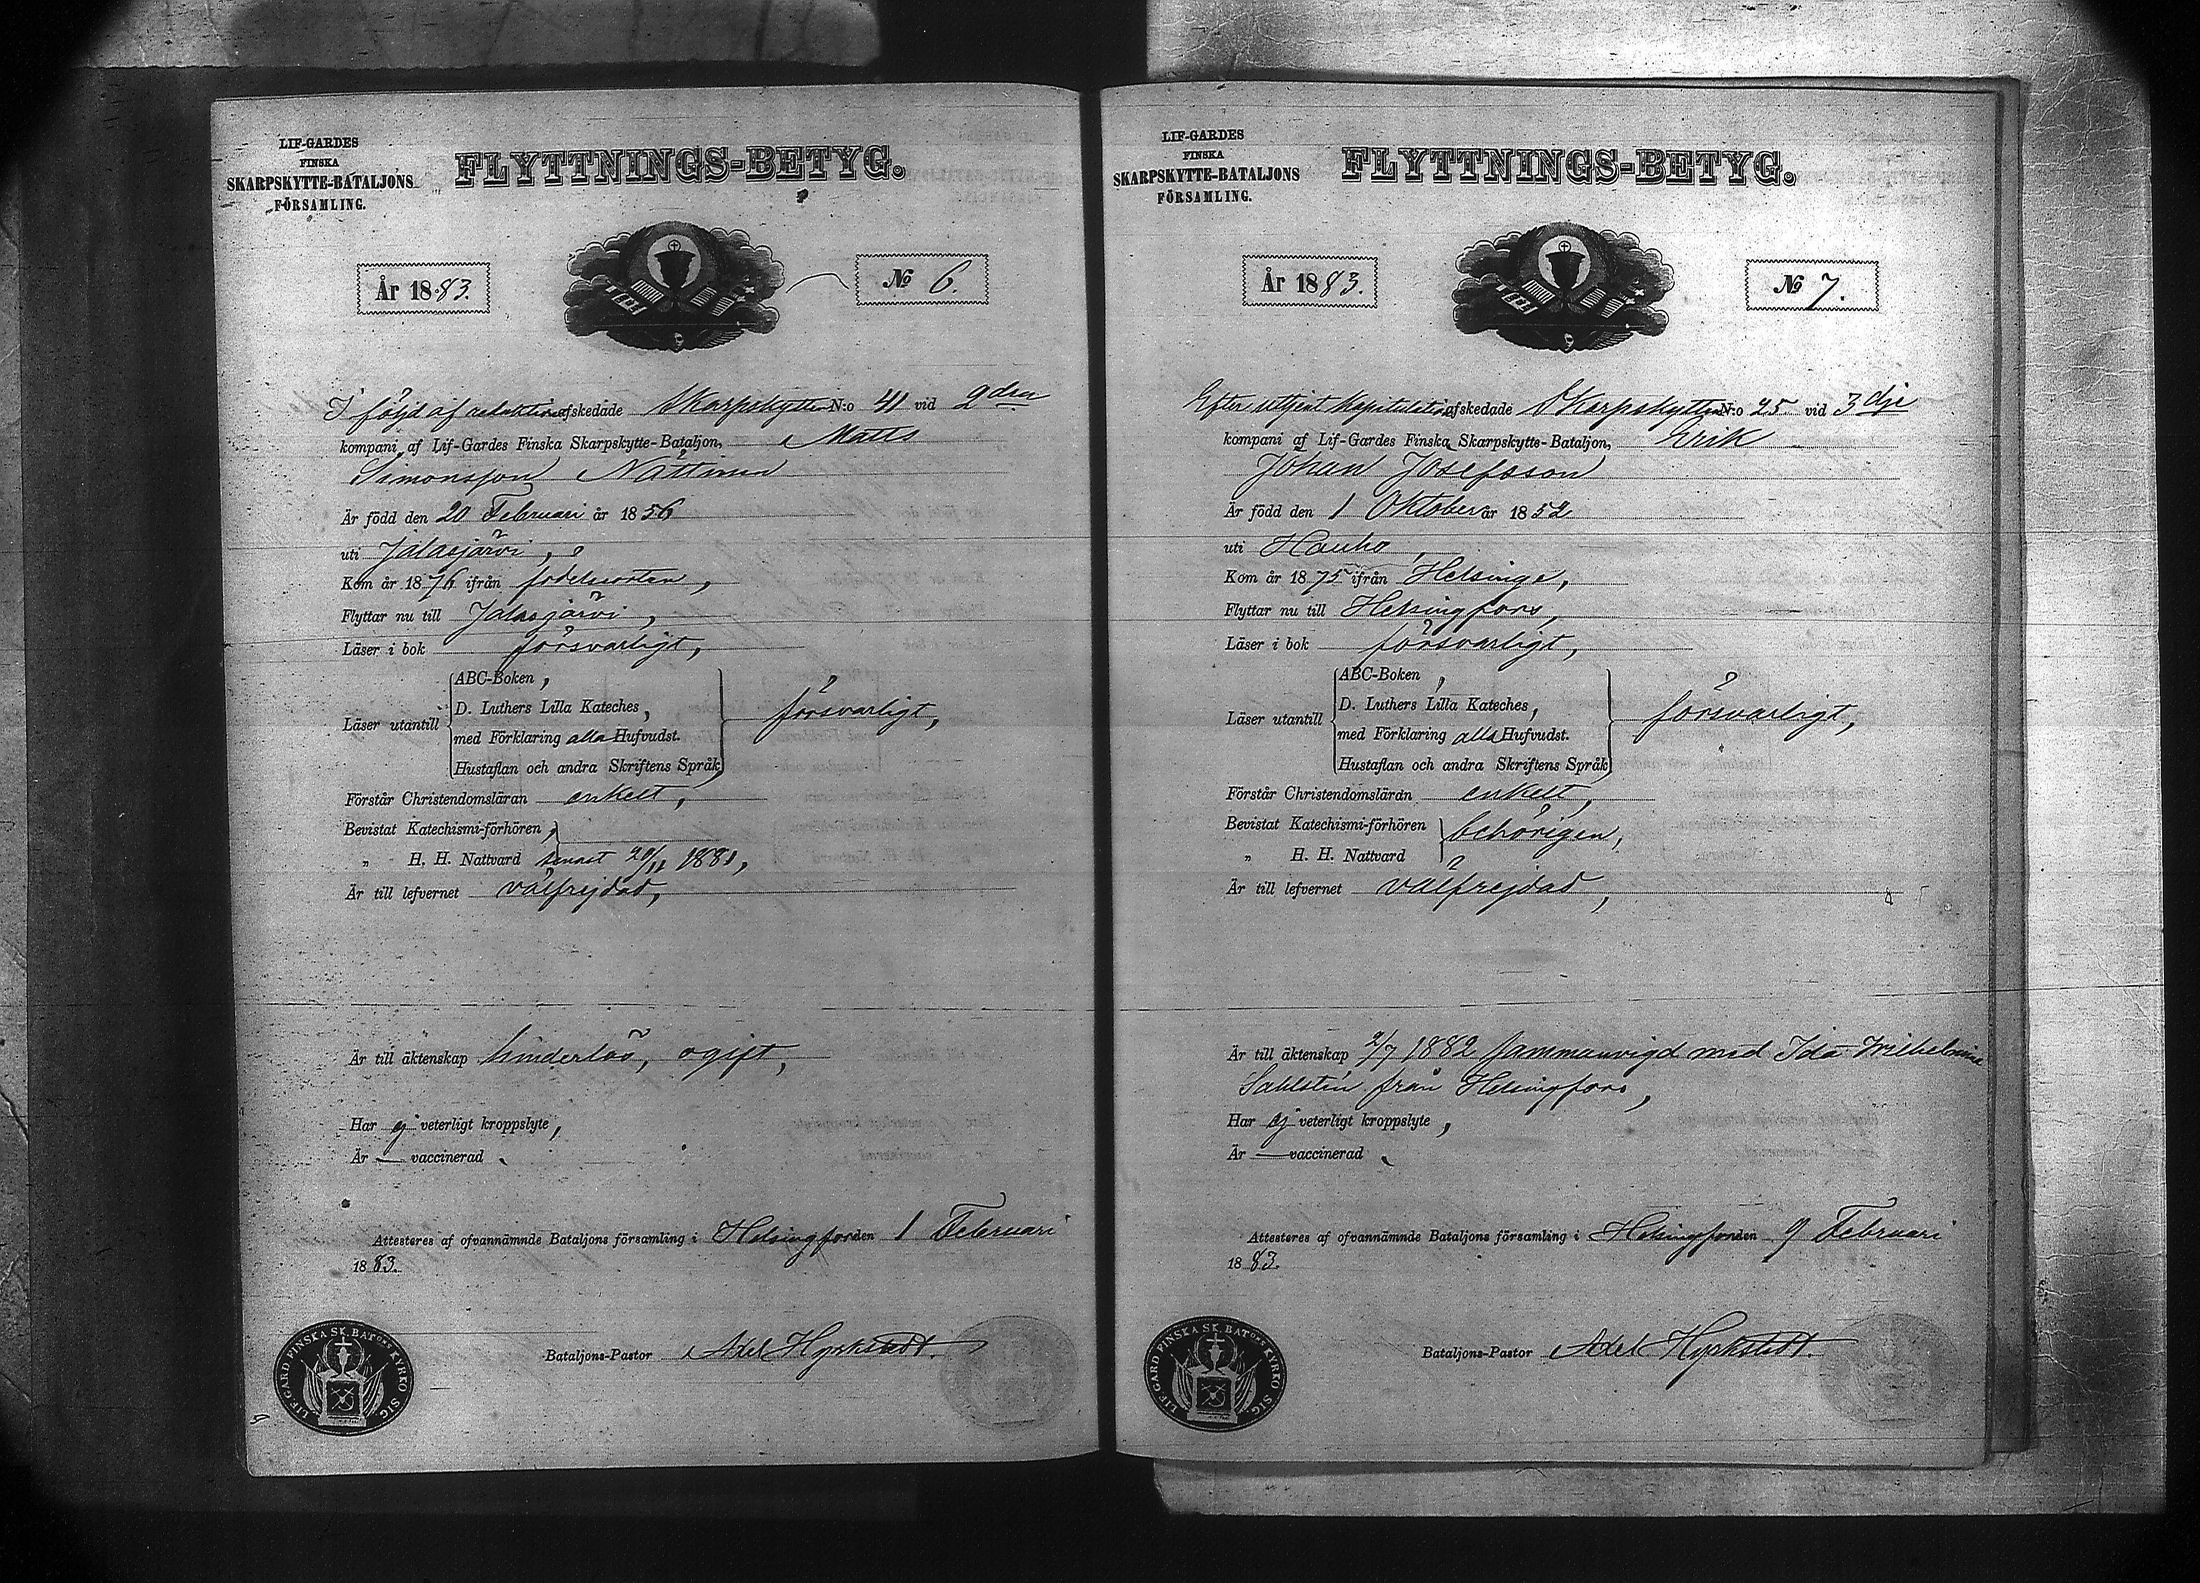 LIF-GARDES
FINSKA
SKARPSKYTTE-BATALJONS
FÖRSAMLING.
FLYTTNINGS-BETYG.
År 1883.
No 6.
I följd af reduktion afskedade Skarpskytten N:o 41 vid 2dra
kompani af Lif-Gardes Finska Skarpskytte-Bataljon, Matts
Simonsson Nättinen
Är född den 20 Februari år 1856
uti Jalasjärvi,
Kom år 1876 ifrån födelseorten,
Flyttar nu till Jalasjärvi,
Läser i bok försvarligt,
Läser utantill
ABC-Boken,
D. Luthers Lilla Kateches,
med Förklaring alla Hufvudst.
Hustaflan och andra Skriftens Språk
försvarligt,
Förstår Christendomsläran enkelt,
Bevistat Katechismi-förhören,
„ H. H. Nattvard senast 20/11 1881,
Är till lefvernet välfrejdad,
Är till äktenskap hinderlös, ogift,
Har ej veterligt kroppslyte,
Är — vaccinerad.
Attesteres af ofvannämnde Bataljons församling i Helsingfors den 1 Februari
1883.
Bataljons-Pastor Axel Hyrkstedt.
LIF. GARD FINSKA SK. BATons KYRKO SIG.
LIF-GARDES
FINSKA
SKARPSKYTTE-BATALJONS
FÖRSAMLING.
FLYTTNINGS-BETYG.
År 1883.
No 7.
Efter uttjent kapitulation afskedade Skarpskytten N:o 25 vid 3dje
kompani af Lif-Gardes Finska Skarpskytte-Bataljon, Erik
Johan Josefsson
Är född den 1 Oktober år 1852
uti Hauho,
Kom år 1875 ifrån Helsinge,
Flyttar nu till Helsingfors,
Läser i bok försvarligt,
Läser utantill
ABC-Boken,
D. Luthers Lilla Kateches,
med Förklaring alla Hufvudst.
Hustaflan och andra Skriftens Språk
försvarligt,
Förstår Christendomsläran enkelt,
Bevistat Katechismi-förhören
„ H. H. Nattvard
behörigen,
Är till lefvernet välfrejdad,
Är till äktenskap 2/7 1882 sammanvigd med Ida Wilhelmina
Sahlstén från Helsingfors,
Har ej veterligt kroppslyte,
Är — vaccinerad.
Attesteres af ofvannämnde Bataljons församling i Helsingfors den 9 Februari
1883.
Bataljons-Pastor Axel Hyrkstedt.
LIF. GARD FINSKA SK. BATons KYRKO SIG.